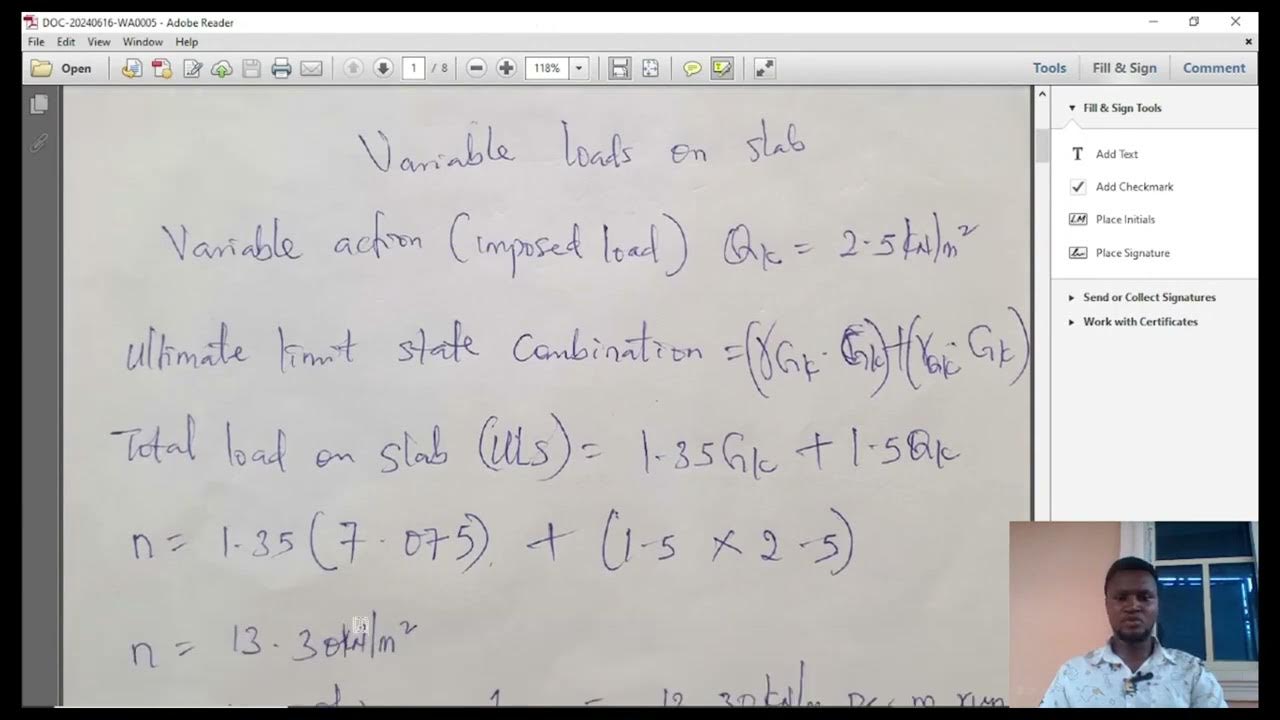 DOC-20240616-WA0005 - Adobe Reader
File Edit View Window Help
Open 1 / 8 118% Tools Fill & Sign Comment
Fill & Sign Tools
Add Text
Add Checkmark
Place Initials
Place Signature
Send or Collect Signatures
Work with Certificates
Variable loads on slab
Variable action (imposed load) Qk = 2.5kN/m²
Ultimate limit state Combination = (γGk. Gk)+(γQk. Gk)
Total load on slab (ULS) = 1.35Gk + 1.5Qk
n = 1.35(7.075) + (1.5 × 2.5)
n = 13.30kN/m²
= 13.30kN/m per m run